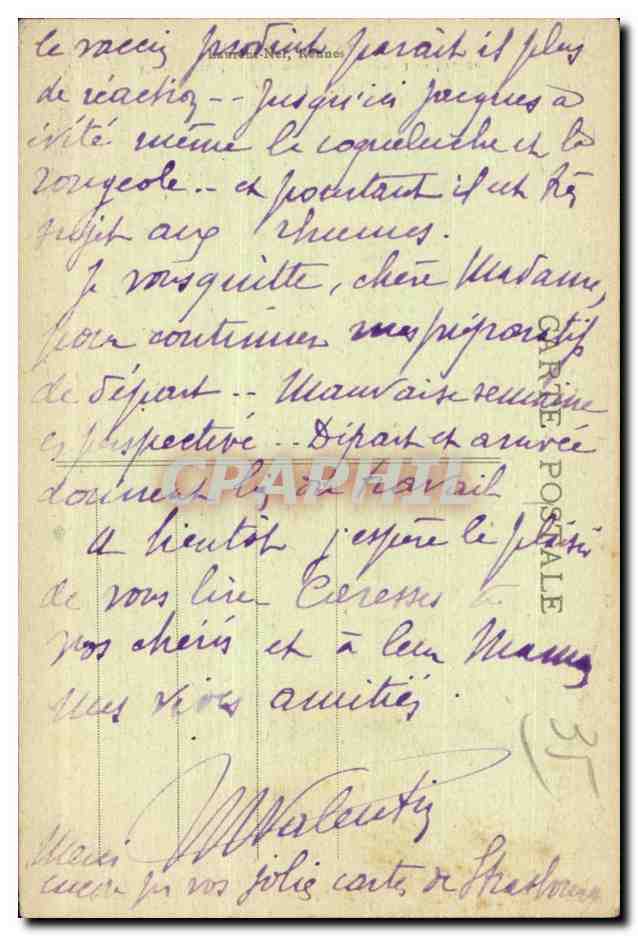 le vaccin produit paraît il plus
Laurent-Nel, Rennes
de réaction -- Jusqu'ici Jacques a
évité même la coqueluche et la
rougeole .. et pourtant il est très
sujet aux rhumes.
Je vous quitte, chère Madame,
pour continuer mes préparatifs
de départ .. Mauvaise semaine
en perspective .. Départ et arrivée
donnent bien du travail
A bientôt j'espère le plaisir
de vous lire Caresses à
vos chéris et à leur Maman
mes vives amitiés.
MValentin
Merci
encore pr vos jolies cartes de Strasbourg
CARTE POSTALE
CPAPHIL
35